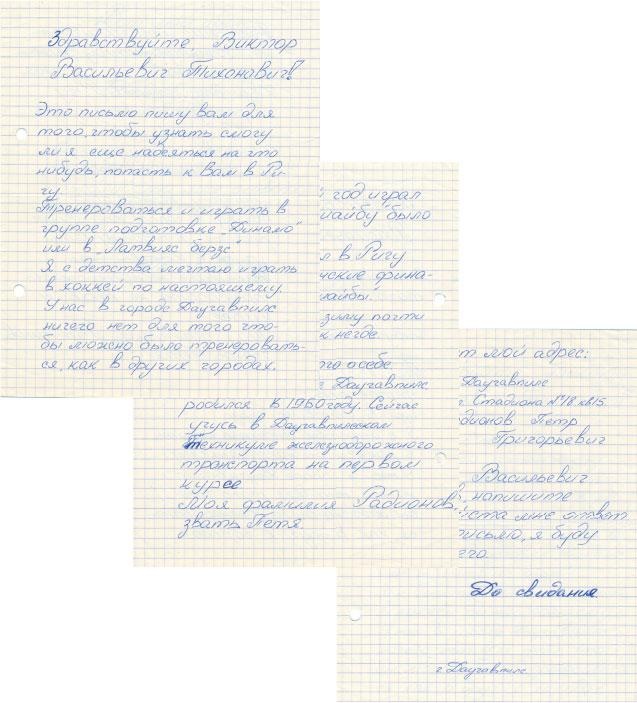 Здравствуйте, Виктор
Васильевич Тихонавич!
Это письмо пишу вам для
того, чтобы узнать смогу
ли я еще надеяться на что
нибудь, попасть к Вам в Ри-
гу.
Тренероваться и играть в
группе подготовке „Динамо"
или в „Латвияс берзс"
Я с детства мечтаю играть
в хоккей по настоящему.
У нас в городе Даугавпилс
ничего нет для того что-
бы можно было тренеровать-
ся, как в других городах.
год играл
шайбу было
л в Ригу
ские фина-
айбы.
зиму почти
к негде
о себе
г Даугавпилс
родился в 1960 году. Сейчас
учусь в Даугавпилсском
техникуме железнодорожного
транспорта на первом
курсе
Моя фамилия Радионов,
звать Петя.
т мой адрес:
Даугавпилс
Стадиона №18 кв15.
дионов Петр
Григорьевич
Васильевич
, напишите
йста мне ответ
письмо, я буду
его.
До свидания
г. Даугавпилс